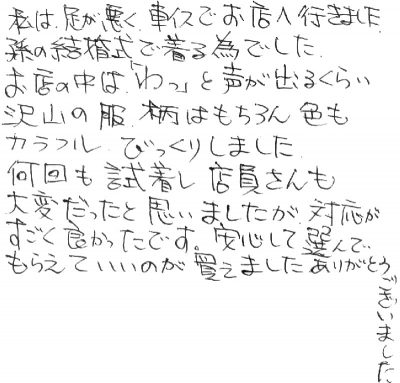 私は足が悪く車イスでお店へ行きました
孫の結婚式で着る為でした
お店の中は「わっ」と声が出るくらい
沢山の服 柄はもちろん色も
カラフル びっくりしました
何回も試着し店員さんも
大変だったと思いましたが対応が
すごく良かったです。安心して選んで
もらえていいのが買えましたありがとう
ございました